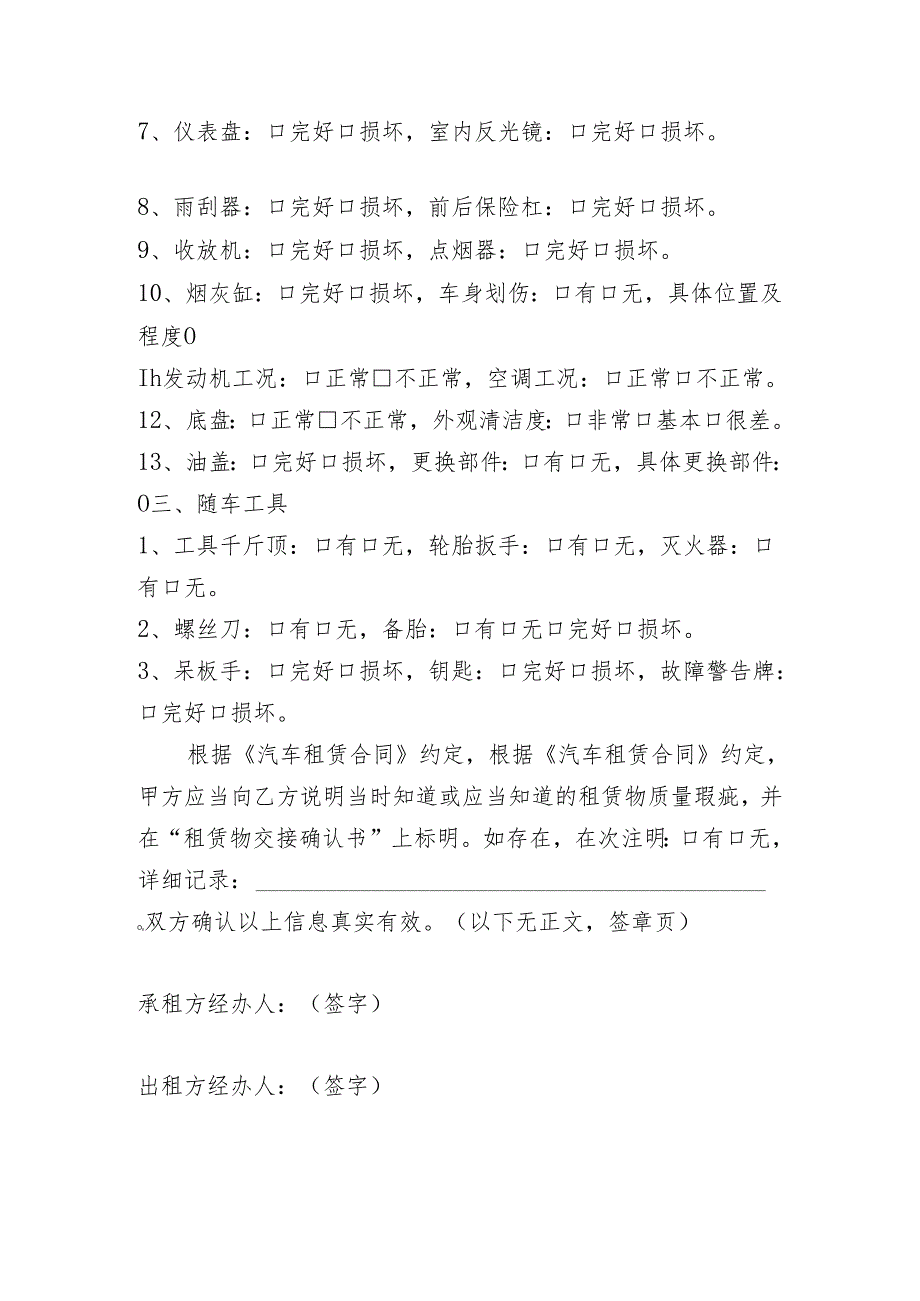 7、仪表盘：口完好口损坏，室内反光镜：口完好口损坏。
8、雨刮器：口完好口损坏，前后保险杠：口完好口损坏。
9、收放机：口完好口损坏，点烟器：口完好口损坏。
10、烟灰缸：口完好口损坏，车身划伤：口有口无，具体位置及
程度0
Ih发动机工况：口正常□不正常，空调工况：口正常口不正常。
12、底盘：口正常□不正常，外观清洁度：口非常口基本口很差。
13、油盖：口完好口损坏，更换部件：口有口无，具体更换部件：
0三、随车工具
1、工具千斤顶：口有口无，轮胎扳手：口有口无，灭火器：口
有口无。
2、螺丝刀：口有口无，备胎：口有口无口完好口损坏。
3、呆板手：口完好口损坏，钥匙：口完好口损坏，故障警告牌：
口完好口损坏。
根据《汽车租赁合同》约定，根据《汽车租赁合同》约定，
甲方应当向乙方说明当时知道或应当知道的租赁物质量瑕疵，并
在“租赁物交接确认书”上标明。如存在，在次注明：口有口无，
详细记录：____________________________________________
。双方确认以上信息真实有效。（以下无正文，签章页）
承租方经办人：（签字）
出租方经办人：（签字）